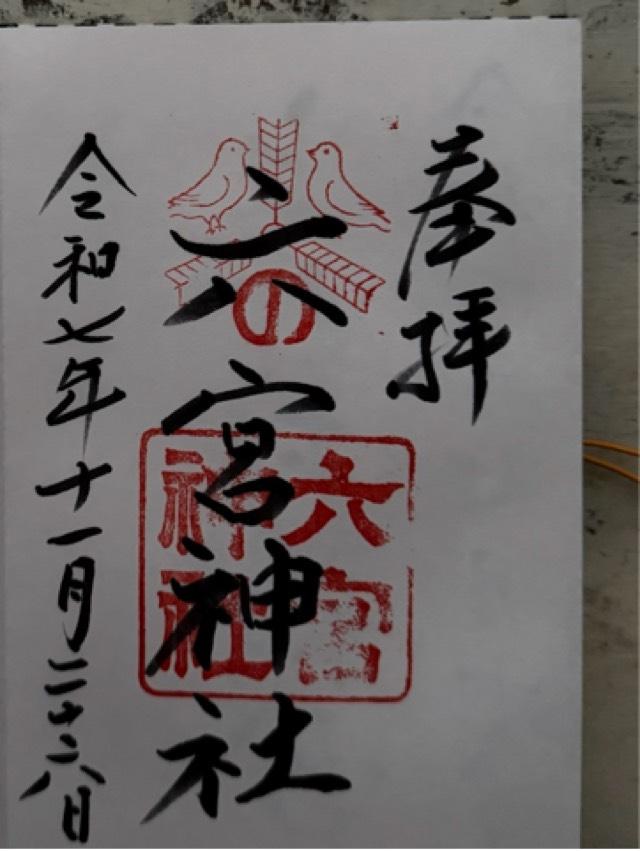 奉拝
六の宮神社
六宮
神社
令和七年十一月二十六日